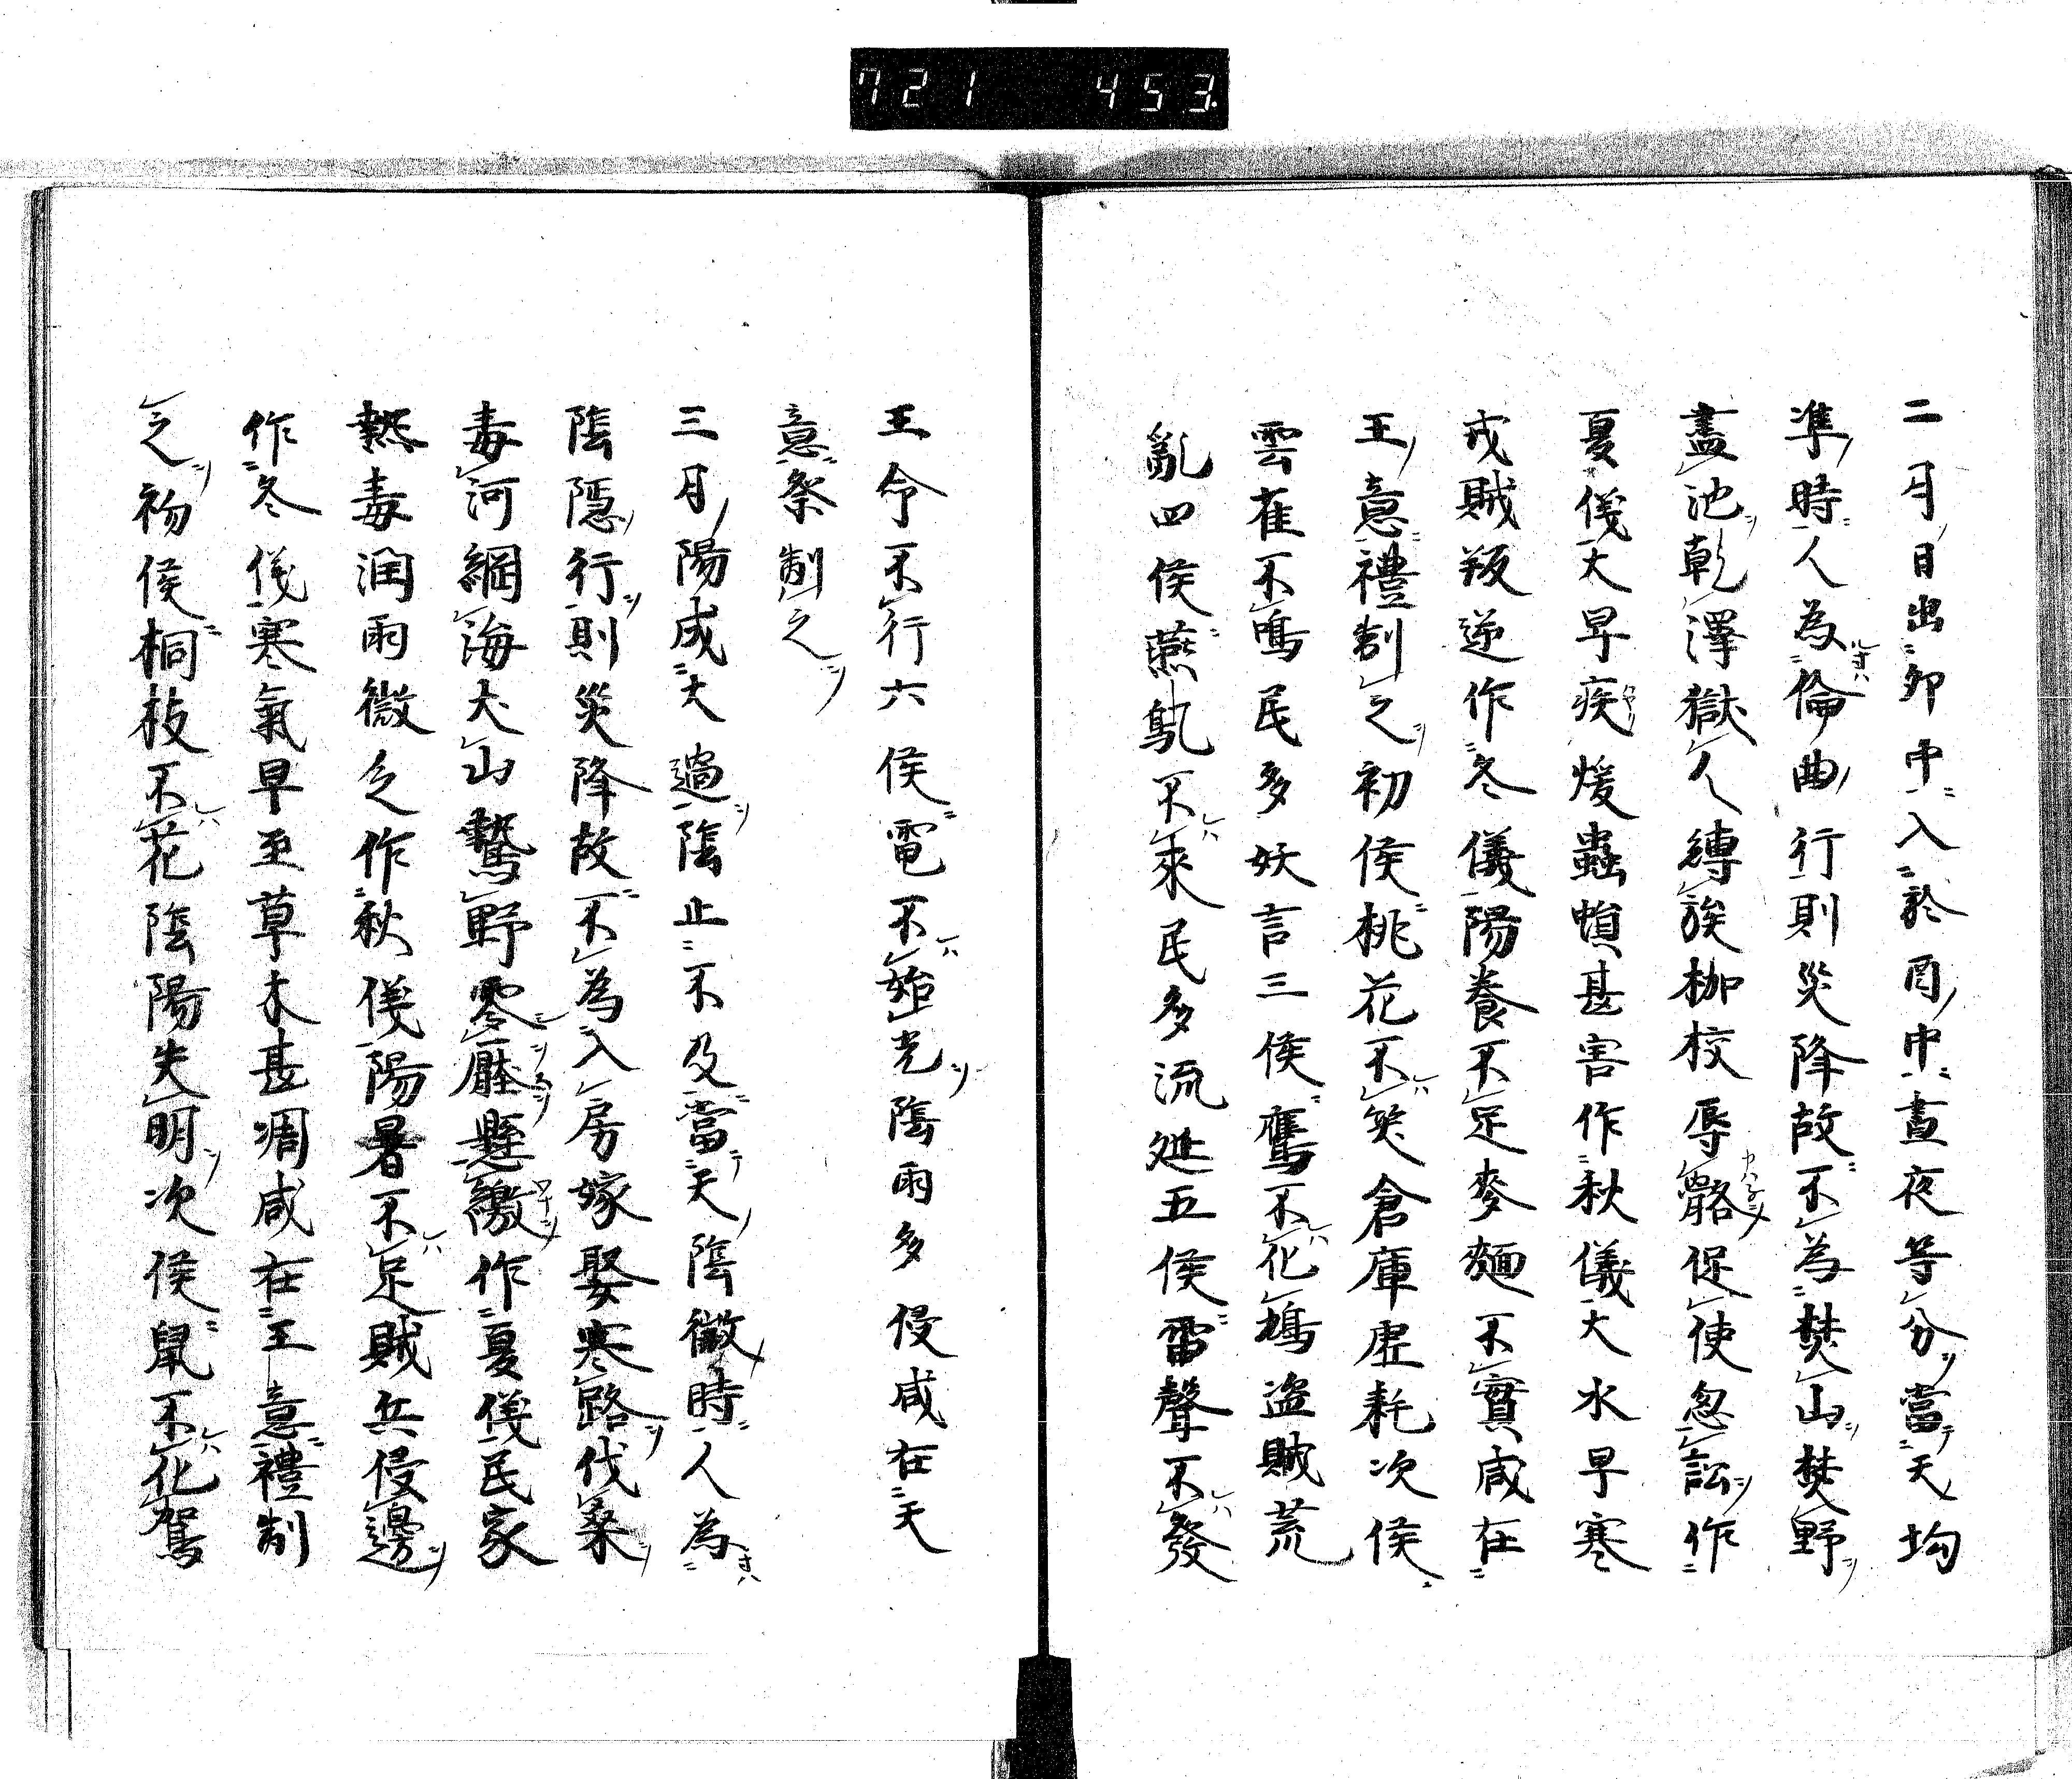 721 453
二月日出卯中入於酉中晝夜等分當天均
準時人為倫曲行則災降故不為焚山焚野
盡池乾澤獄人縛族枷校辱骼促使忽訟作
夏儀大旱疾煖蟲蝗甚害作秋儀大水旱寒
戎賊叛逆作冬儀陽養不足麥麵不實咸在
王意禮制之初侯桃花不笑倉庫虛耗次侯
雲雀不鳴民多妖言三侯鷹不化鳩盜賊荒
亂四侯燕鳦不來民多流遊五侯雷聲不發
王命不行六侯電不始光陰雨多侵咸在天
意祭制之
三月陽成大過陰止不及當天陰微時人為
陰隱行則災降故不為入房嫁娶寒路伐桑
毒河綱海犬山驚野零壓懸繳作夏儀民家
熱毒潤雨微乏作秋儀陽暑不足賊兵侵邊
作冬儀寒氣早至草木甚凋咸在王意禮制
之初侯桐枝不花陰陽失明次侯鼠不化駕